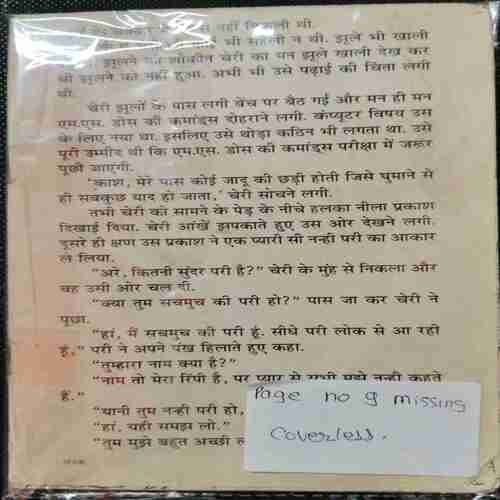 नहीं निकली थी.
भी सहेली न थी. झूले भी खाली
झूलने की शौकीन चेरी का मन झूले खाली देख कर
भी झूलने को नहीं हुआ. अभी भी उसे पढ़ाई की चिंता लगी
थी.
चेरी झूलों के पास लगी बेंच पर बैठ गई और मन ही मन
एम.एस. डोस की कमांड्स दोहराने लगी. कंप्यूटर विषय उस
के लिए नया था. इसलिए उसे थोड़ा कठिन भी लगता था. उसे
पूरी उम्मीद थी कि एम.एस. डोस की कमांड्स परीक्षा में जरूर
पूछी जाएंगी.
“काश, मेरे पास कोई जादू की छड़ी होती जिसे घुमाने से
ही सबकुछ याद हो जाता,” चेरी सोचने लगी.
तभी चेरी को सामने के पेड़ के नीचे हलका नीला प्रकाश
दिखाई दिया. चेरी आंखें झपकाते हुए उस ओर देखने लगी.
दूसरे ही क्षण उस प्रकाश ने एक प्यारी सी नन्ही परी का आकार
ले लिया.
“अरे, कितनी सुंदर परी है?” चेरी के मुंह से निकला और
वह उसी ओर चल दी.
“क्या तुम सचमुच की परी हो?” पास जा कर चेरी ने
पूछा.
“हां, मैं सचमुच की परी हूं. सीधे परी लोक से आ रही
हूं,” परी ने अपने पंख हिलाते हुए कहा.
“तुम्हारा नाम क्या है?”
“नाम तो मेरा रिंपी है, पर प्यार से सभी मुझे नन्ही कहते
हैं.”
“यानी तुम नन्ही परी हो,
“हां, यही समझ लो.”
“तुम मुझे बहुत अच्छी
Page no 9 missing
Coverless.